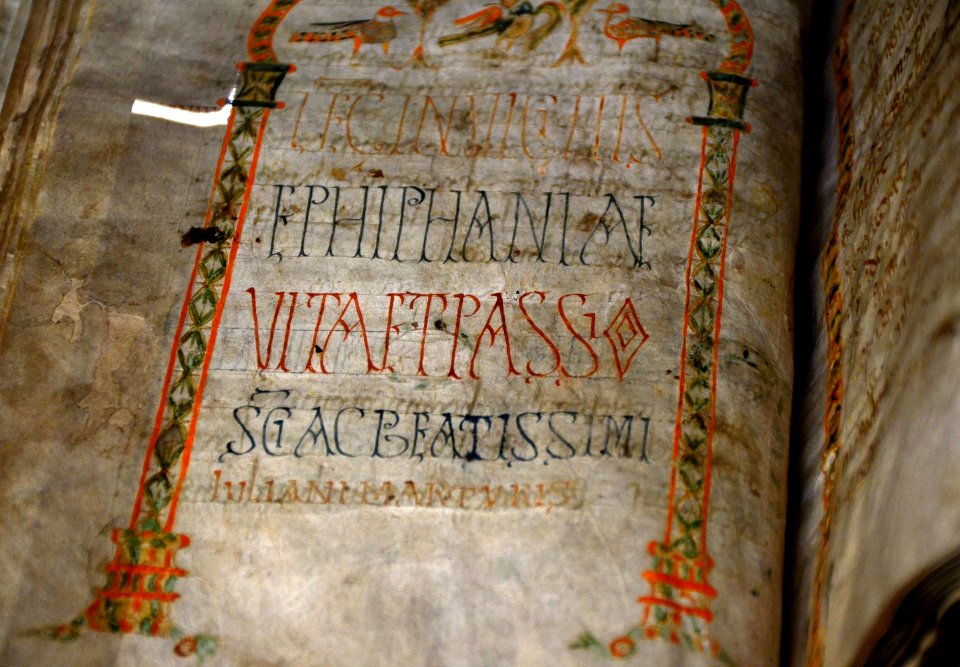 LEC INUIGILIIS
EPHIPHANIAE
VITAETPASSO
SCI AC BEATISSIMI
IULIANI MARTYRIS